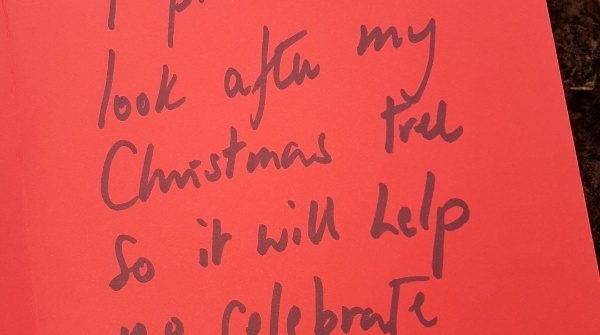 look after my
Christmas tree
so it will help
me celebrate